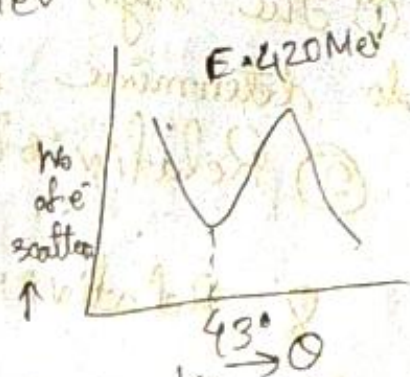 E = 420 Mev
No
of e⁻
scatter
↑
43°
→ θ